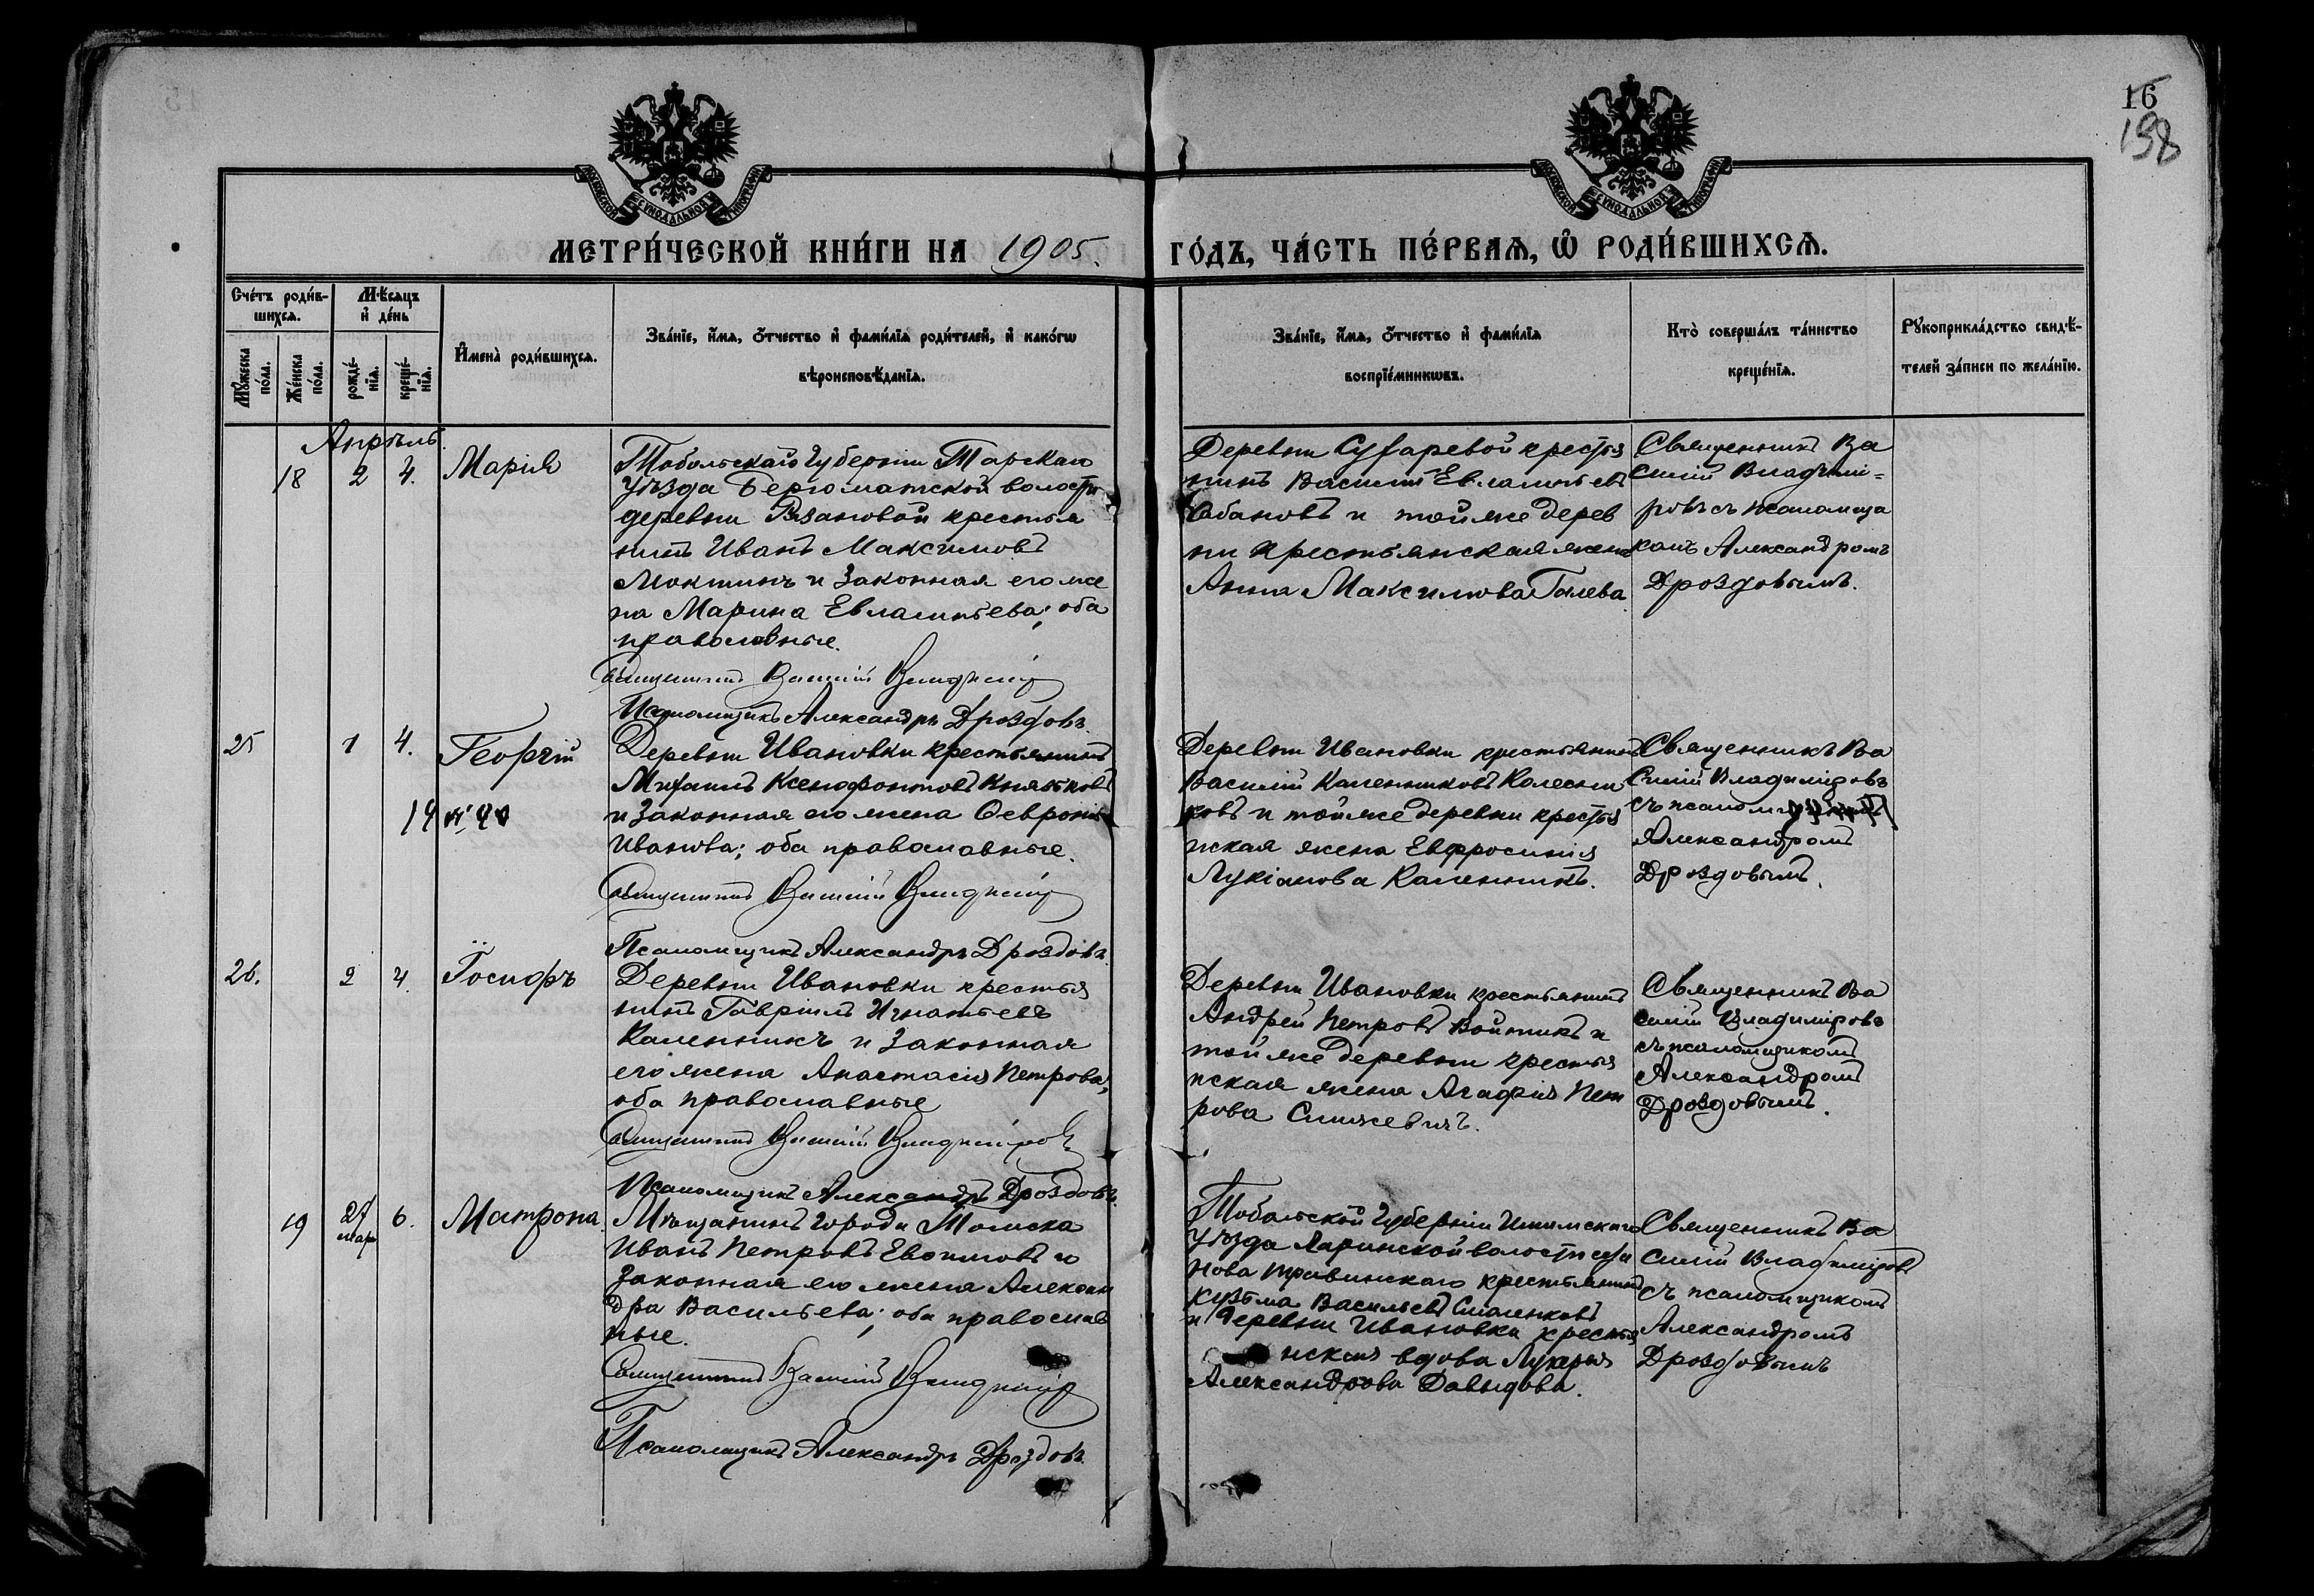 16
198
МОСКОВСКОЙ СѴНОДАЛЬНОЙ ТИПОГРАФІИ
МОСКОВСКОЙ СѴНОДАЛЬНОЙ ТИПОГРАФІИ
МЕТРИ́ЧЕСКОЙ КНИ́ГИ НА 1905.
ГО́ДЪ, ЧА́СТЬ ПЕ́РВАѦ, Ѡ РОДИ́ВШИХСѦ.
Сче́тъ роди́в-
шихсѧ.
Мѣ́сѧцъ
и҆ де́нь
Мꙋ́жеска по́ла.
Же́нска по́ла.
рожде́-нїѧ.
креще́-нїѧ.
И҆мена̀ роди́вшихсѧ.
Зва́нїе, и҆́мѧ, ѻ҆́тчество и҆ фами́лїѧ роди́телей, и҆ како́гѡ
вѣроисповѣ́данїѧ.
Зва́нїе, и҆́мѧ, ѻ҆́тчество и҆ фами́лїѧ
воспрїе́мникѡвъ.
Кто̀ соверша́лъ та́инство
креще́нїѧ.
Рꙋкоприкла́дство свидѣ́-
телей за́писи по жела́нїю.
Апрѣль.
18 2 4. Марія
Тобольской Губерніи Тарскаго
Уѣзда Бергоматской волости
деревни Рязановой крестья
нинъ Иванъ Максимовъ
Моктинъ и законная его же
на Марина Евлампьева; оба
православные.
Священникъ Василій Владиміровъ
Псаломщикъ Александръ Дроздовъ.
Деревни Суфаревой крестья
нинъ Василій Евлампьевъ
Лобановъ и той же дерев
ни крестьянская жена
Анна Максимова Галева.
Священникъ Ва
силій Владимі=
ровъ съ псаломщи
комъ Александромъ
Дроздовымъ.
25 1 4. Георгій
14
Деревни Ивановки крестьянинъ
Михаилъ Ксенофонтовъ Княжновъ
и законная его жена Ѳевронія
Иванова; оба православные.
Священникъ Василій Владиміровъ
Псаломщикъ Александръ Дроздовъ.
Деревни Ивановки крестьянинъ
Василій Калениковъ Колесни
ковъ и той же деревни крестья
нская жена Евфросинія
Лукіанова Каленникъ.
Священникъ Ва
силій Владиміровъ
съ псаломщикомъ
Александромъ
Дроздовымъ.
26. 2 4. Іосифъ
Деревни Ивановки крестья
нинъ Гавріилъ Игнатьевъ
Каленникъ и законная
его жена Анастасія Петрова,
оба православные
Священникъ Василій Владиміровъ
Псаломщикъ Александръ Дроздовъ.
Деревни Ивановки крестьянинъ
Андрей Петровъ Войтикъ и
той же деревни крестья
нская жена Агафія Пет
рова Синкевичъ.
Священникъ Ва
силій Владиміровъ
съ псаломщикомъ
Александромъ
Дроздовымъ.
19 27 мар 6. Матрона.
Мѣщанинъ города Томска
Иванъ Петровъ Евдимовъ и
законная его жена Алексан
дра Васильева; оба православ
ные.
Священникъ Василій Владиміровъ
Псаломщикъ Александръ Дроздовъ.
Тобольской Губерніи Ишимскаго
Уѣзда Ларинской волости села
Нова Травинскаго крестьянинъ
Кузьма Васильевъ Смаленковъ
и деревни Ивановки крестья
нская вдова Лукерья
Александрова Давыдова.
Священникъ Ва
силій Владиміровъ
съ псаломщикомъ
Александромъ
Дроздовымъ